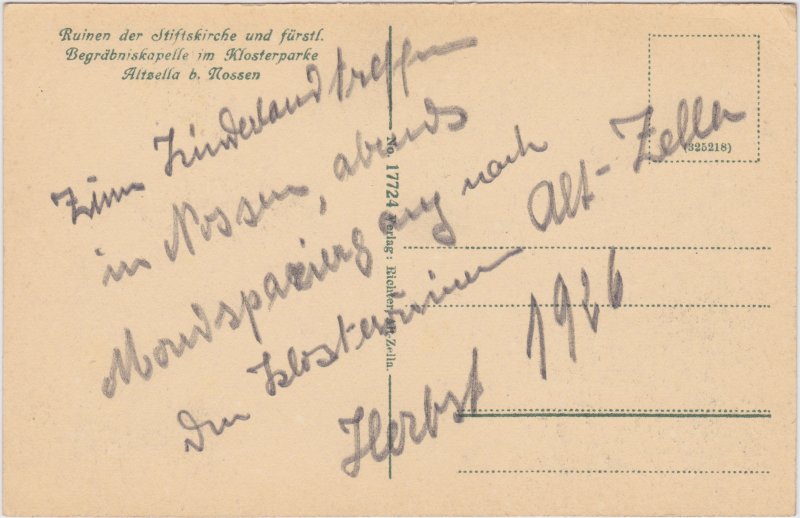 Ruinen der Stiftskirche und fürstl.
Begräbniskapelle im Klosterparke
Altzella b. Nossen
(325218)
No. 17724 Verlag: Richter, Alt-Zella.
Zum Kinderlandtreffen
in Nossen, abends
Mondspaziergang nach
den Klosterruinen Alt-Zella
Herbst 1926